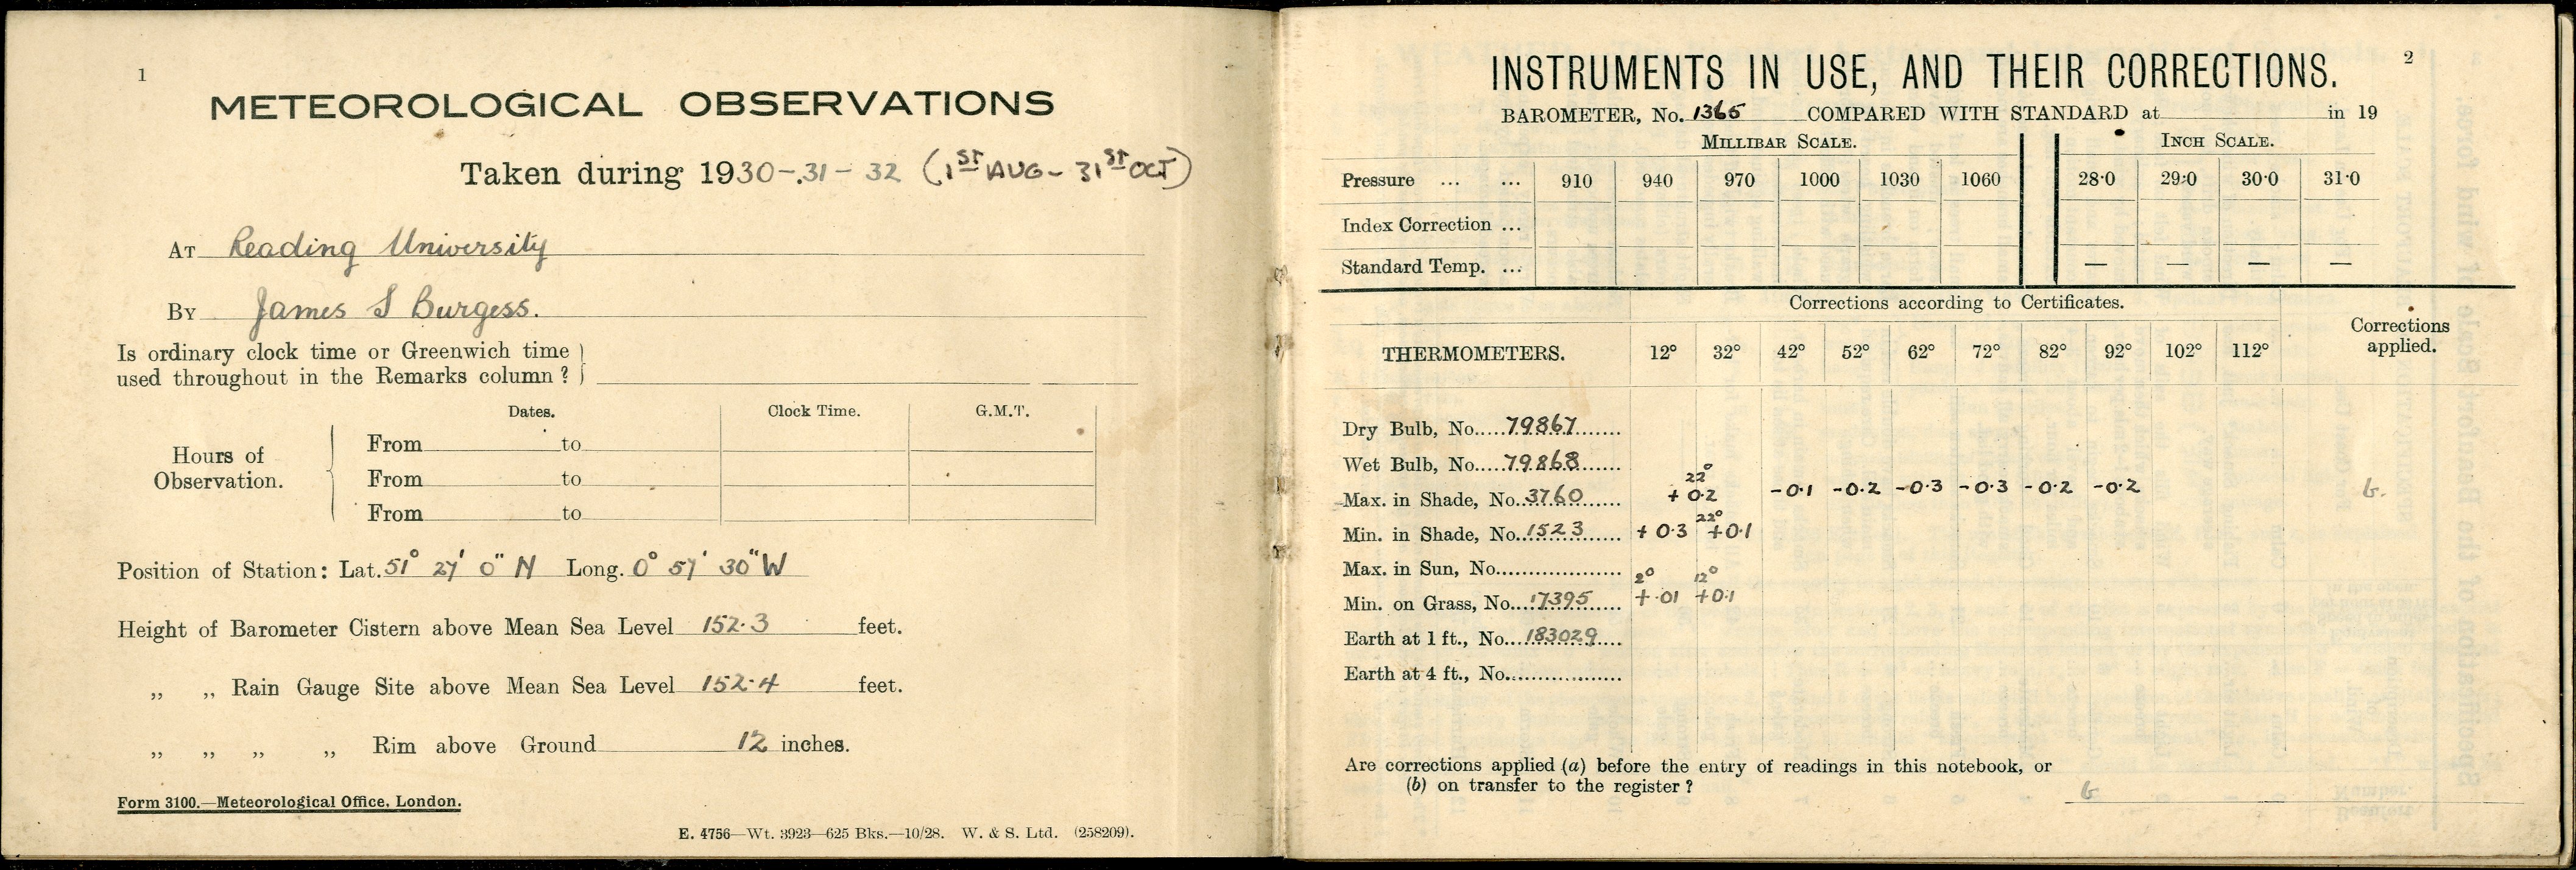 1
METEOROLOGICAL OBSERVATIONS
Taken during 1930-.31-32 (1ST AUG- 31ST OCT)
AT Reading University
BY James S Burgess.
Is ordinary clock time or Greenwich time
used throughout in the Remarks column ?
Dates. Clock Time. G.M.T.
Hours of Observation.
From to
From to
From to
Position of Station: Lat. 51° 27' 0" N Long. 0° 57' 30" W
Height of Barometer Cistern above Mean Sea Level 152.3 feet.
„ „ Rain Gauge Site above Mean Sea Level 152.4 feet.
„ „ „ „ Rim above Ground 12 inches.
Form 3100.—Meteorological Office, London.
E. 4756—Wt. 3923—625 Bks.—10/28. W. & S. Ltd. (258209).
2
INSTRUMENTS IN USE, AND THEIR CORRECTIONS.
BAROMETER, No. 1365 COMPARED WITH STANDARD at in 19
MILLIBAR SCALE. INCH SCALE.
Pressure ... ... 910 940 970 1000 1030 1060 28·0 29·0 30·0 31·0
Index Correction ...
Standard Temp. ... — — — —
Corrections according to Certificates.
THERMOMETERS. 12° 32° 42° 52° 62° 72° 82° 92° 102° 112° Corrections applied.
Dry Bulb, No. 79867
Wet Bulb, No. 79868
22°
Max. in Shade, No. 3760 +0.2 -0.1 -0.2 -0.3 -0.3 -0.2 -0.2 b.
22°
Min. in Shade, No. 1523 +0.3 +0.1
Max. in Sun, No.
2° 12°
Min. on Grass, No. 17395 +.01 +0.1
Earth at 1 ft., No. 183029
Earth at 4 ft., No.
Are corrections applied (a) before the entry of readings in this notebook, or
(b) on transfer to the register ? b